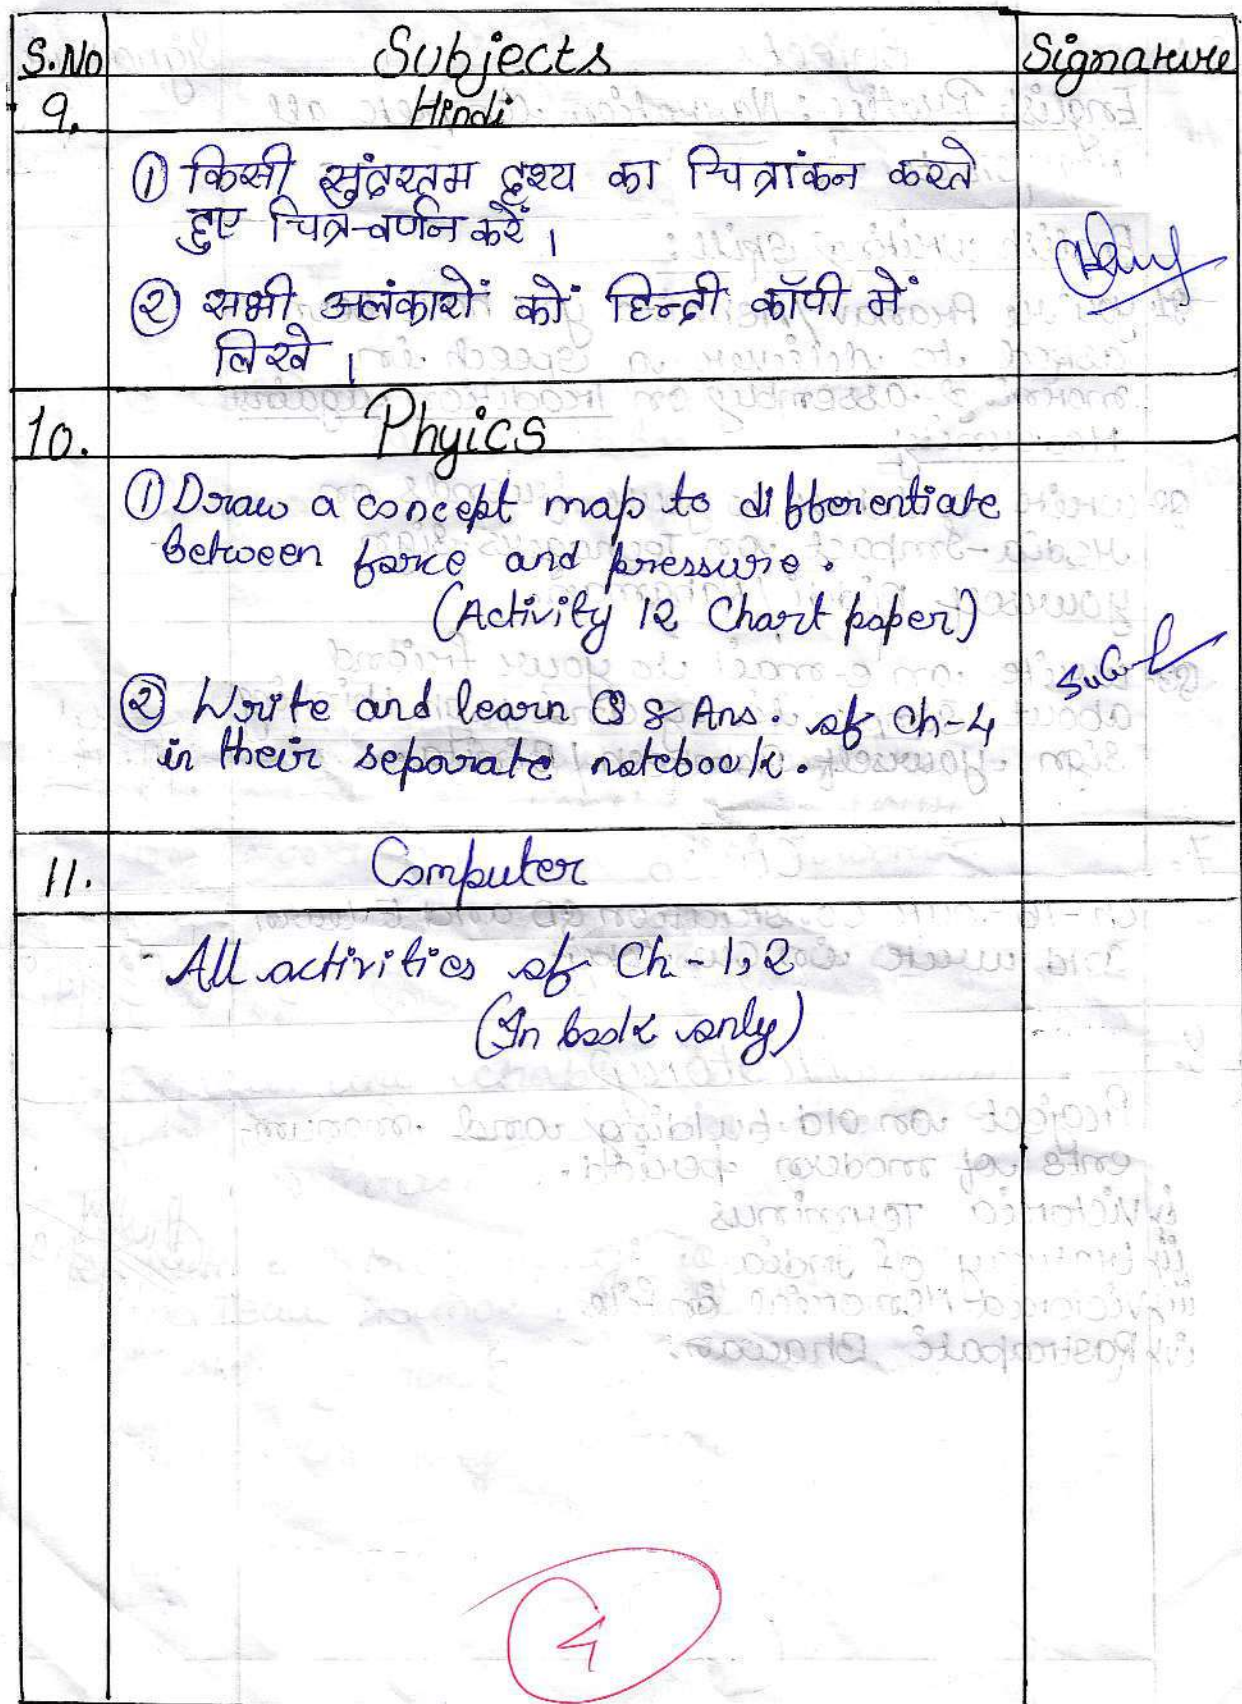 S.No Subjects Signature
9. Hindi
① किसी सुंदरतम दृश्य का चित्रांकन करते
हुए चित्र-वर्णन करें ।
② सभी अलंकारों कों हिन्दी कॉपी में
लिखे ।
10. Phyics
① Draw a concept map to differentiate
between force and pressure.
(Activity 12 Chart paper)
② Write and learn Q & Ans. of Ch-4
in their separate notebook.
11. Computer
- All activities of Ch-1,2
(In book only)
4